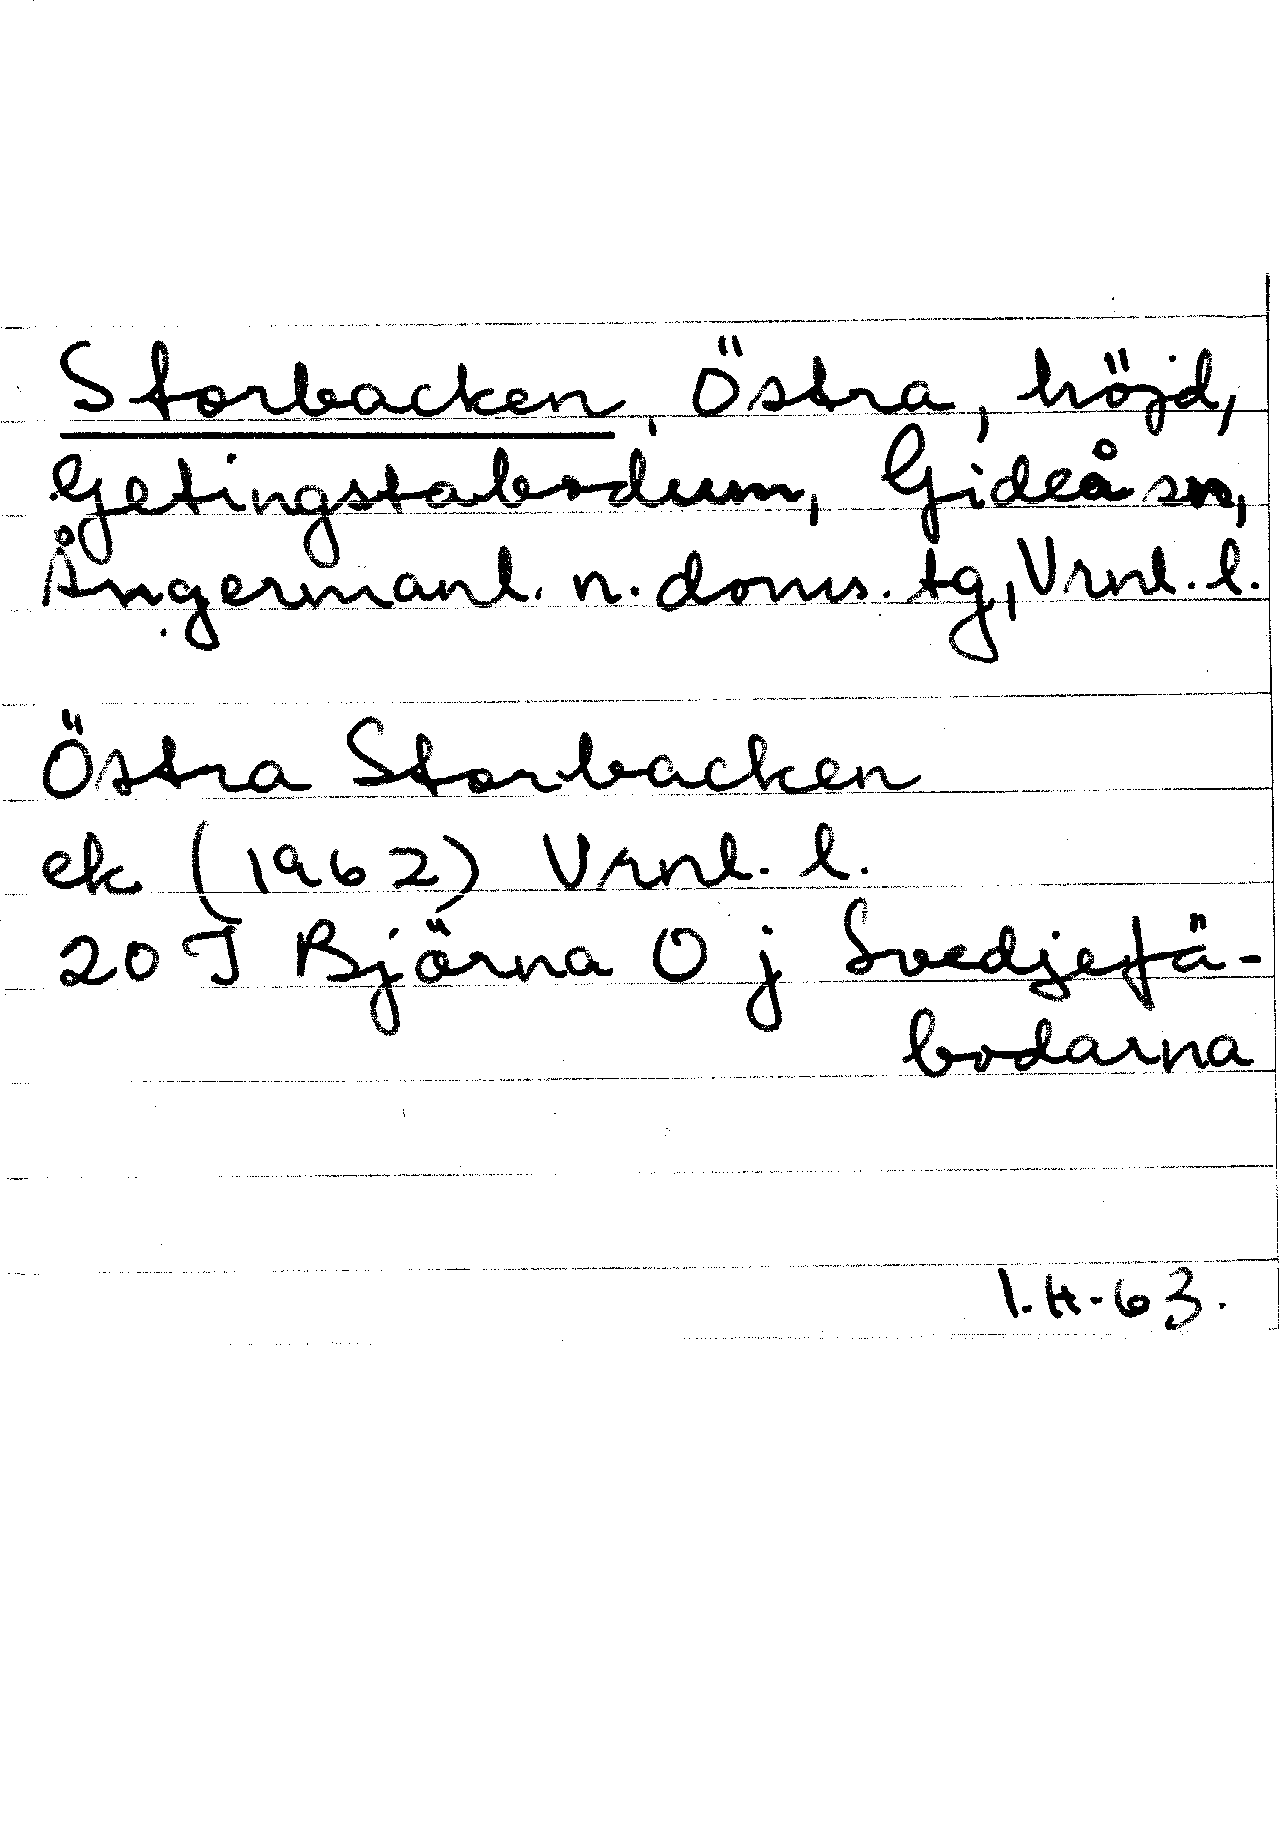 Storbacken, Östra, höjd,
Getingstabodum, Gideå sn,
Ångermanl. n. doms. tg, Vrnl. l.
Östra Storbacken
ek (1962) Vrnl. l.
20 J Björna O j Svedjefä-
bodarna
I.H-63.